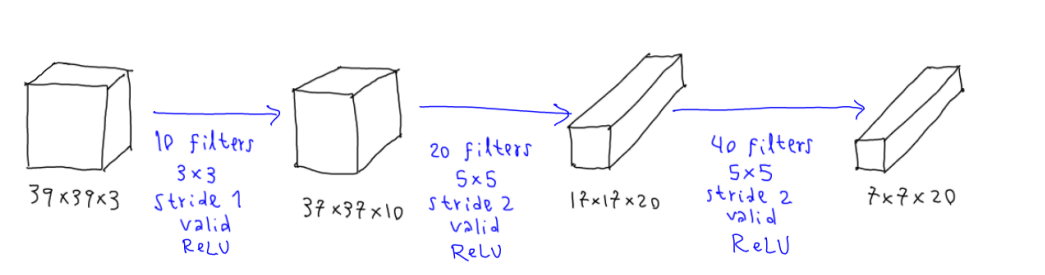 39×39×3
10 filters
3×3
stride 1
valid
ReLU
37×37×10
20 filters
5×5
stride 2
valid
ReLU
17×17×20
40 filters
5×5
stride 2
valid
ReLU
7×7×20